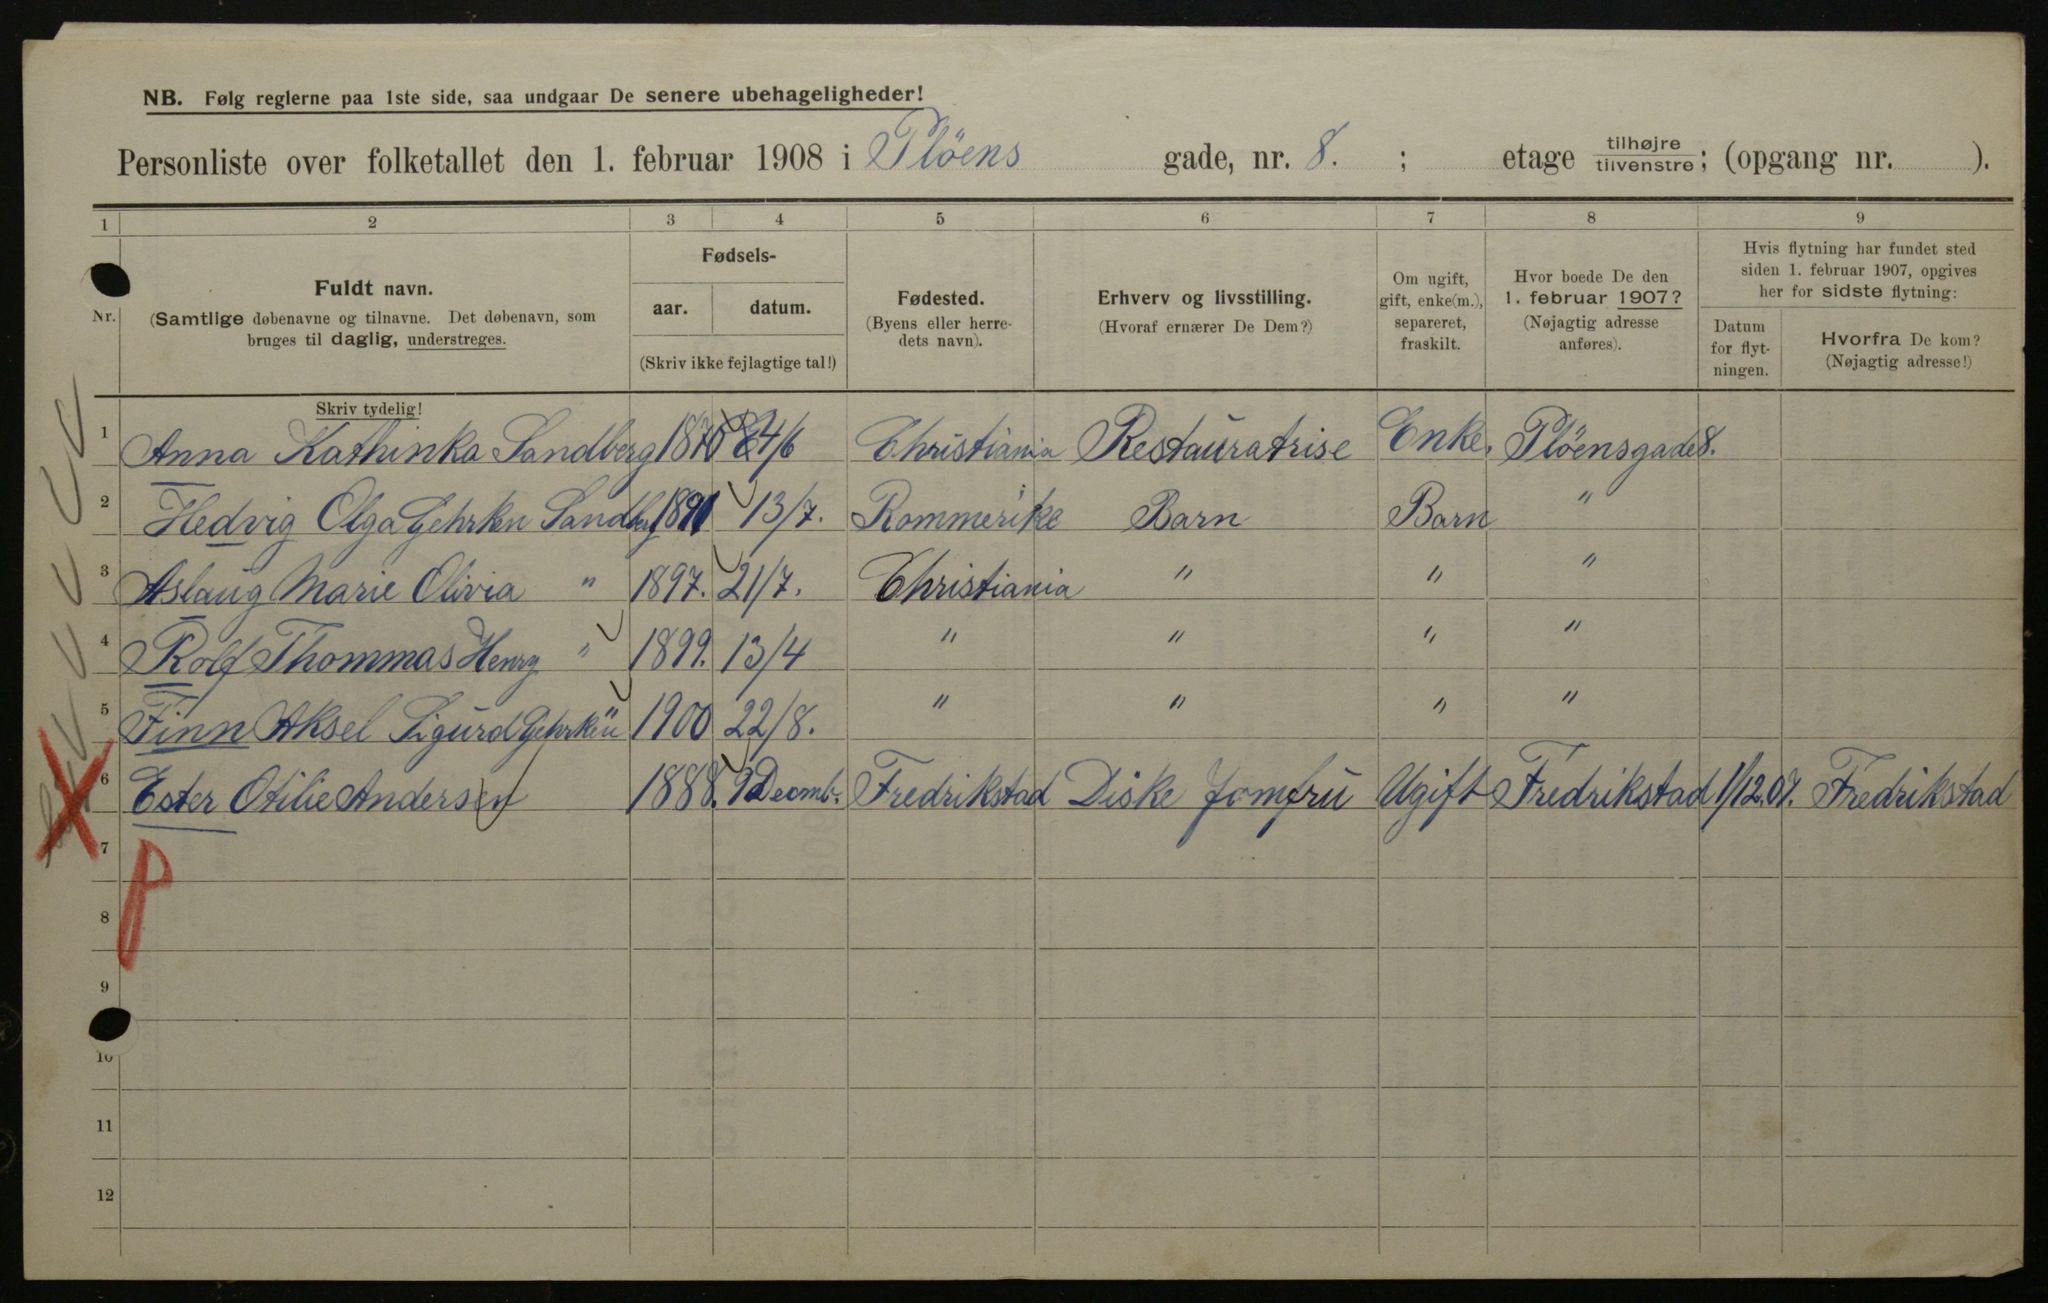 NB. Følg reglerne paa 1ste side, saa undgaar De senere ubehageligheder!
Personliste over folketallet den 1. februar 1908 i Plöens gade, nr. 8. ; etage tilhøjre tilvenstre; (opgang nr. ).
1 2 3 4 5 6 7 8 9
Nr. Fuldt navn. (Samtlige døbenavne og tilnavne. Det døbenavn, som bruges til daglig, understreges.
Skriv tydelig!
Fødsels-
aar. datum.
(Skriv ikke fejlagtige tal!)
Fødested.
(Byens eller herre-
dets navn).
Erhverv og livsstilling.
(Hvoraf ernærer De Dem?)
Om ugift,
gift, enke(m.),
separeret,
fraskilt.
Hvor boede De den
1. februar 1907?
(Nøjagtig adresse
anføres).
Hvis flytning har fundet sted
siden 1. februar 1907, opgives
her for sidste flytning:
Datum
for flyt-
ningen.
Hvorfra De kom?
(Nøjagtig adresse!)
1 Anna Kathinka Sandberg 1870 24/6 Christiania Restauratrise Enke. Plöensgade 8.
2 Hedvig Olga Gehrken Sandberg 1891 13/7. Rommerike Barn Barn "
3 Aslaug Marie Olivia " 1897. 21/7. Christiania " " "
4 Rolf Thommas Henry " 1899. 13/4 " " " "
5 Finn Aksel Sigurd Gehrken " 1900 22/8. " " " "
6 Ester Otilie Andersen 1888. 9 Decmb. Fredrikstad Diske Jomfru Ugift Fredrikstad 1/12.07. Fredrikstad
7
P
8
9
10
11
12